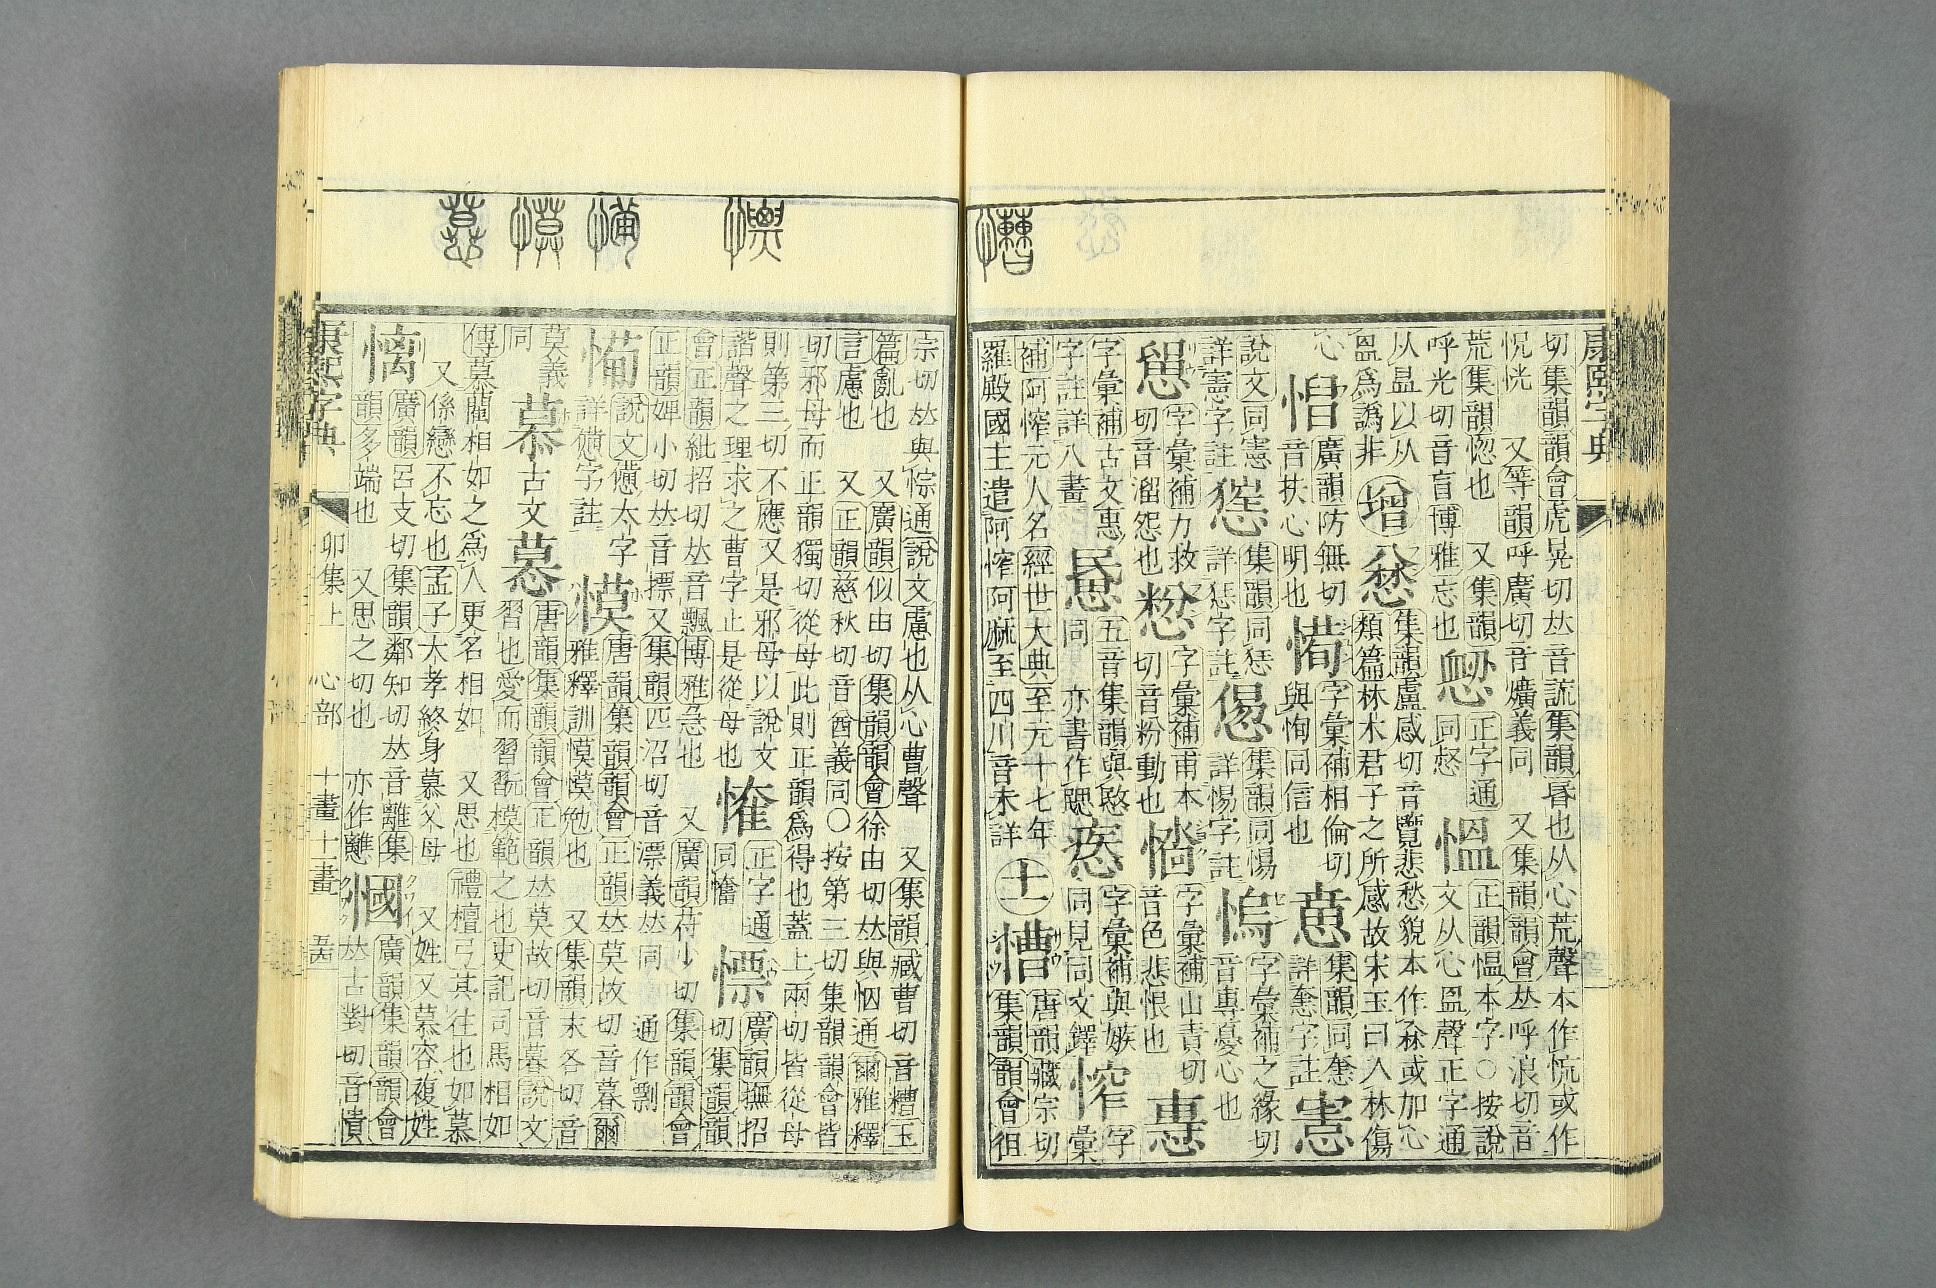 康熙字典
切集韻韻會虎晃切𠀤音謊集韻昏也从心荒聲本作慌或作
怳恍 又等韻呼廣切音爌義同 又集韻韻會𠀤呼浪切音
荒集韻惚也 又集韻 正字通 慍 正韻慍本字○按說
呼光切音盲博雅忘也 同怒 文从心𥁕聲正字通
从昷以从 增 集韻盧感切音覽悲愁貌本作 或加心
𥁕爲譌非 類篇林木君子之所感故宋玉曰入林傷
心 廣韻防無切 字彙補相倫切 集韻同惷 憲
音扶心明也 與恂同信也 詳惷字註
說文同憲 集韻同愆 集韻同惕 字彙補之緣切
詳憲字註 詳愆字註 詳惕字註 音專憂心也
字彙補力救 字彙補甫本 字彙補山責切 惪
切音溜怨也 切音粉動也 音色悲恨也
字彙補古文惠 五音集韻與愍 字彙補與嫉 字
字註詳八畫 同 亦書作 同見同文鐸 彙
補阿 元人名經世大典至元十七年 十一 慒 唐韻藏宗切
羅殿國主遣阿 阿麻至四川音未詳 集韻韻會徂
宗切𠀤與悰通說文慮也从心曹聲 又集韻臧曹切音糟玉
篇亂也 又廣韻似由切集韻韻會徐由切𠀤與怞通爾雅釋
言慮也 又正韻慈秋切音酋義同○按第三切集韻韻會皆
切邪母而正韻獨切從母此則正韻爲得也蓋上兩切皆從母
則第三切不應又是邪母以說文 慛 正字通 慓 廣韻撫招
諧聲之理求之曹字止是從母也 同 切集韻韻
會正韻紕招切𠀤音飄博雅急也 又廣韻苻少切集韻韻會
正韻婢小切𠀤音摽又集韻匹沼切音漂義𠀤同 通作剽
說文憊本字 慔 唐韻集韻韻會正韻𠀤莫故切音暮爾
詳憊字註 雅釋訓慔慔勉也 又集韻末各切音
莫義 慕 古文 唐韻集韻韻會正韻𠀤莫故切音暮說文
同 習也愛而習翫模範之也史記司馬相如
傳慕藺相如之爲人更名相如 又思也禮檀弓其往也如慕
又係戀不忘也孟子大孝終身慕父母 又姓 又慕容複姓
廣韻呂支切集韻鄰知切𠀤音離集 慖 廣韻集韻韻會
韻多端也 又思之切也 亦作 𠀤古對切音憒
康熙字典 卯集上 心部 十畫十一畫